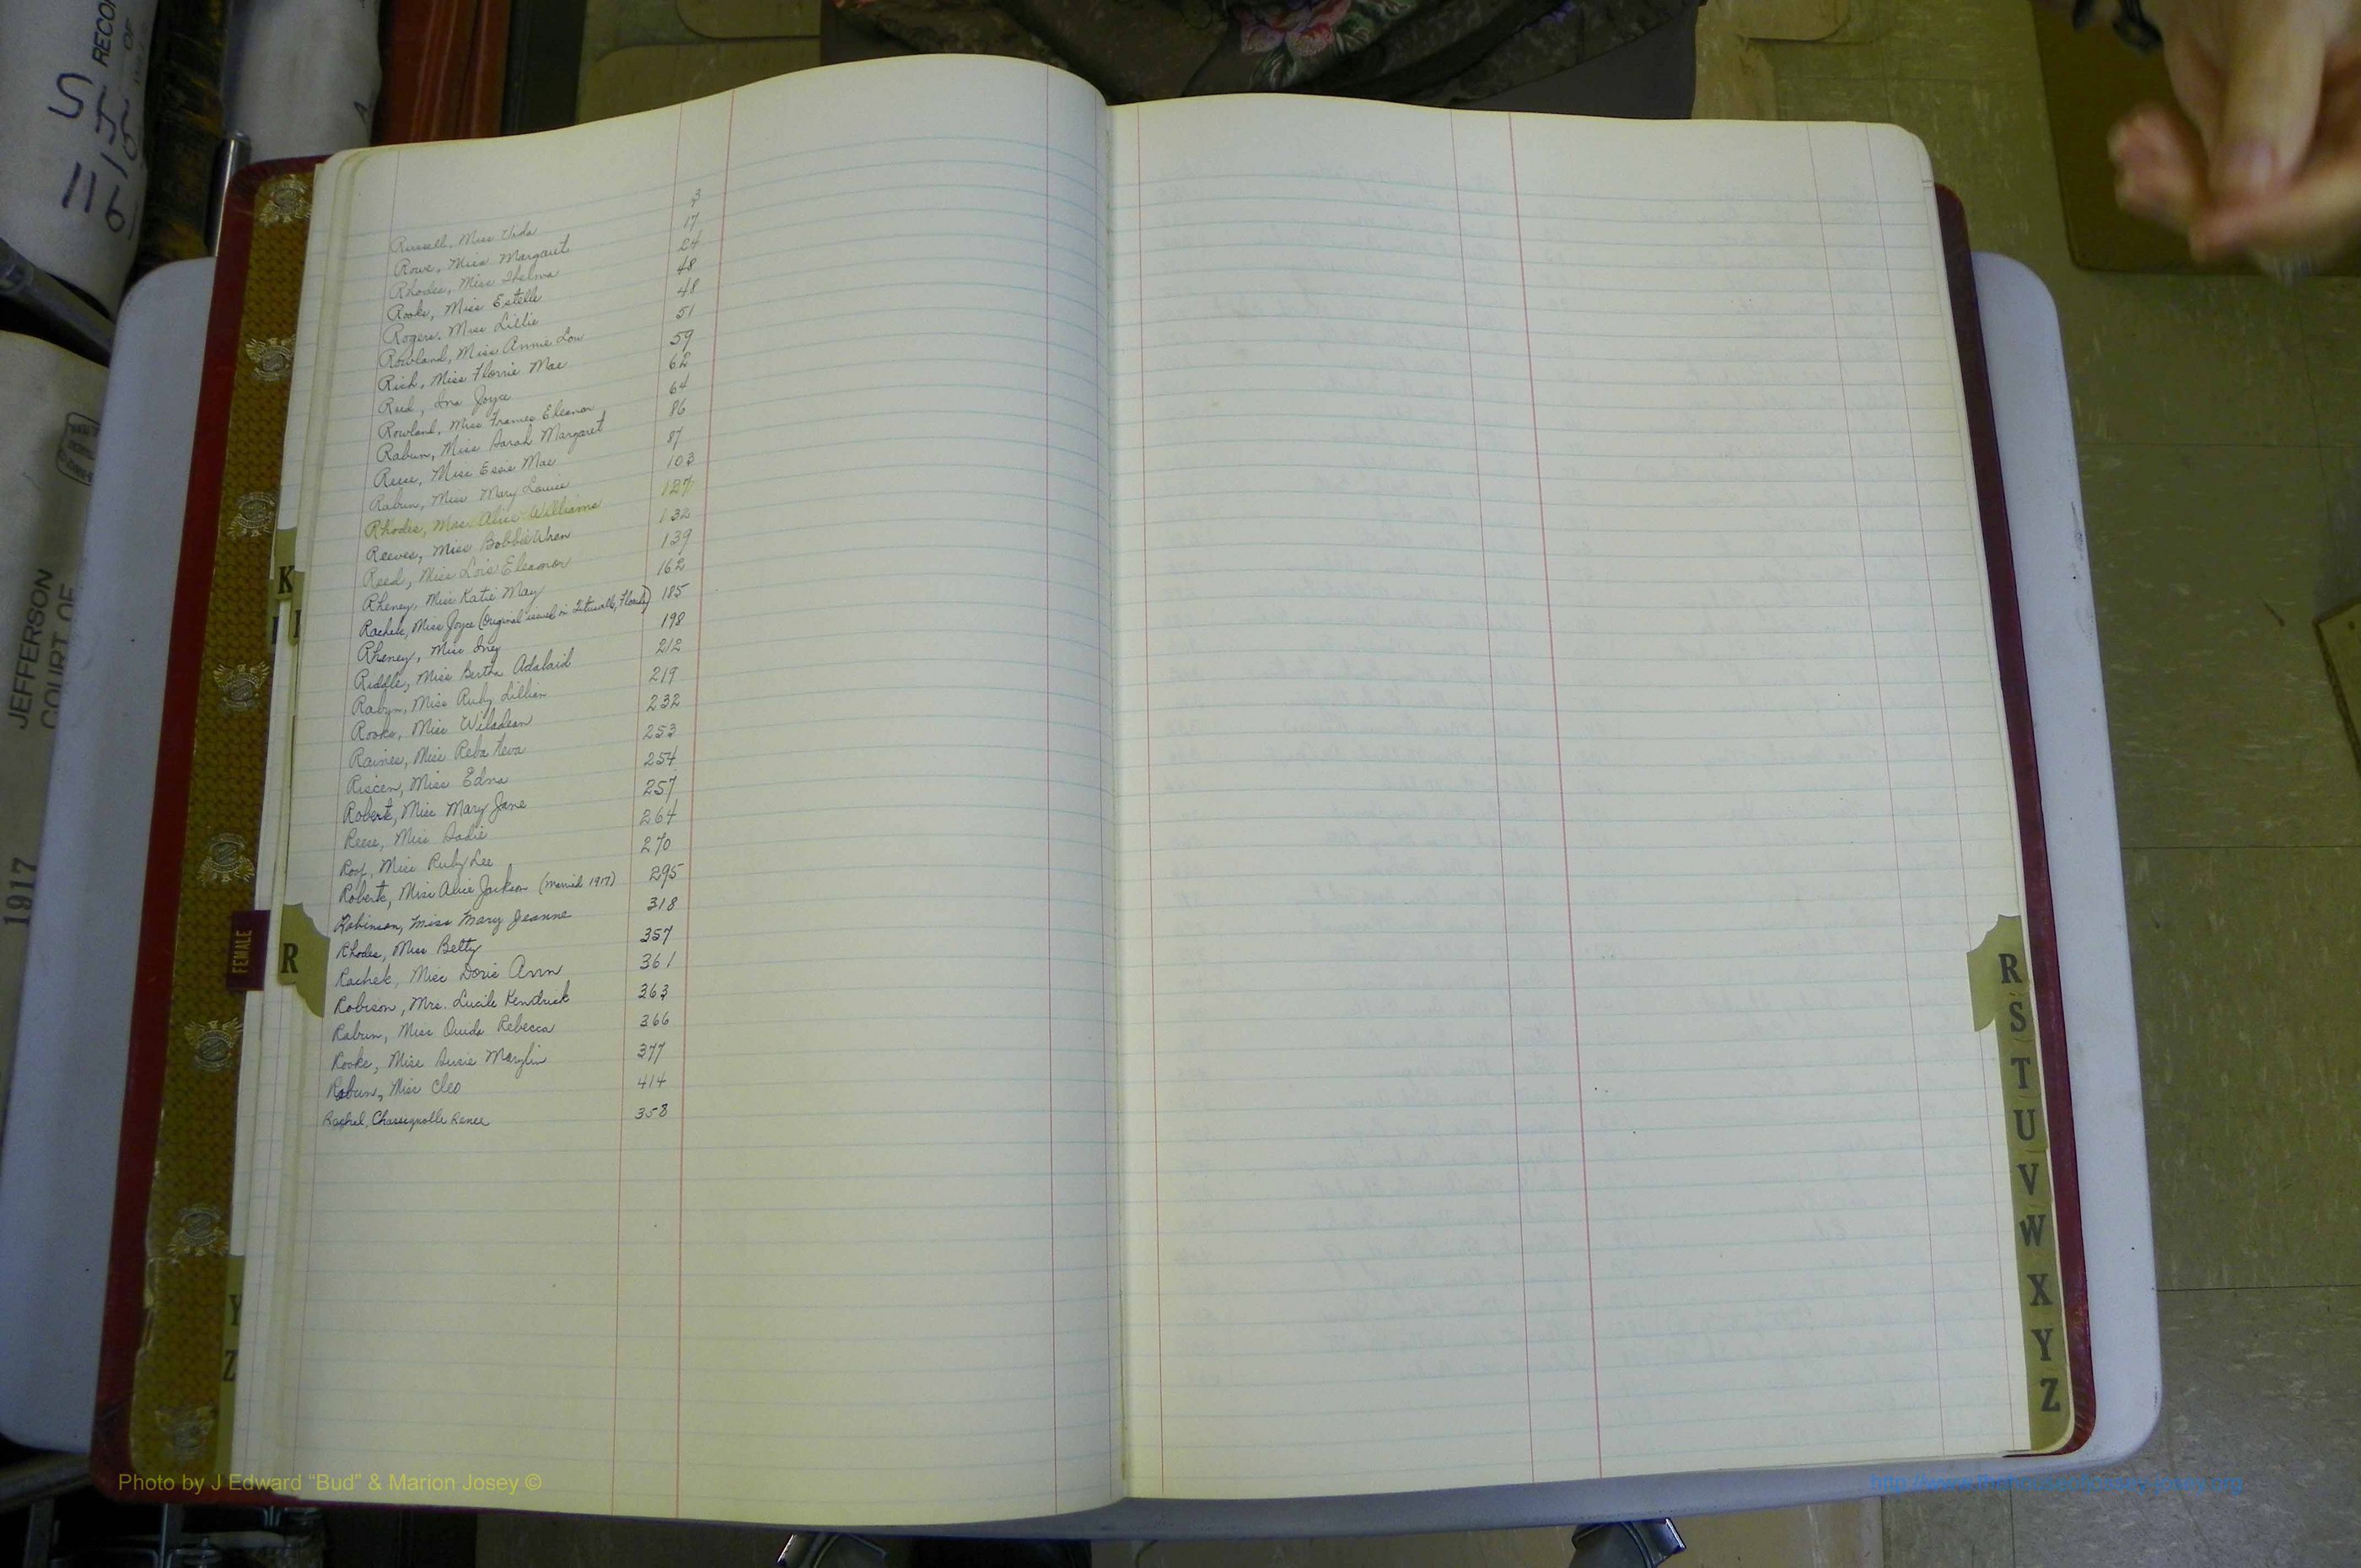 RECO
OF
St
11-15
16
A
JEFFERSON
COURT OF
1917
Russell, Miss Veda 3
Rowe, Miss Margaret 17
Rhodes, Miss Thelma 24
Rooks, Miss Estelle 48
Rogers, Miss Lillie 48
Rowland, Miss Annie Lou 51
Rich, Miss Florrie Mae 59
Reed, Ina Joyce 62
Rowland, Miss Frances Eleanor 64
Rabun, Miss Sarah Margaret 86
Reese, Miss Essie Mae 87
Rabun, Miss Mary Louise 103
Rhodes, Mrs. Alice Williams 127
Reeves, Miss Bobbie Wren 132
Reed, Miss Lois Eleanor 139
Rheney, Miss Katie May 162
Rachels, Miss Joyce (Original issued in Titusville, Florida) 185
Rheney, Miss Inez 198
Riddle, Miss Bertha Adalaid 212
Rabun, Miss Ruby Lillian 219
Rooks, Miss Wiladean 232
Raines, Miss Reba Neva 253
Miss Edna 254
Robert, Miss Mary Jane 257
Reese, Miss Sadie 264
Miss Ruby Lee 270
Roberts, Miss Alice Jackson (married 1917) 295
Robinson, Miss Mary Jeanne 318
Rhodes, Miss Betty 357
Rachels, Miss Doris Ann 361
Robison, Mrs. Lucile Kendrick 363
Rabun, Miss Ouida Rebecca 366
Rooke, Miss Susie Marylin 377
Rabun, Miss Cleo 414
Rachel, Renee 358
K
FEMALE
R
Y
Z
R
S
T
U
V
W
X
Y
Z
Photo by J Edward “Bud” & Marion Josey ©